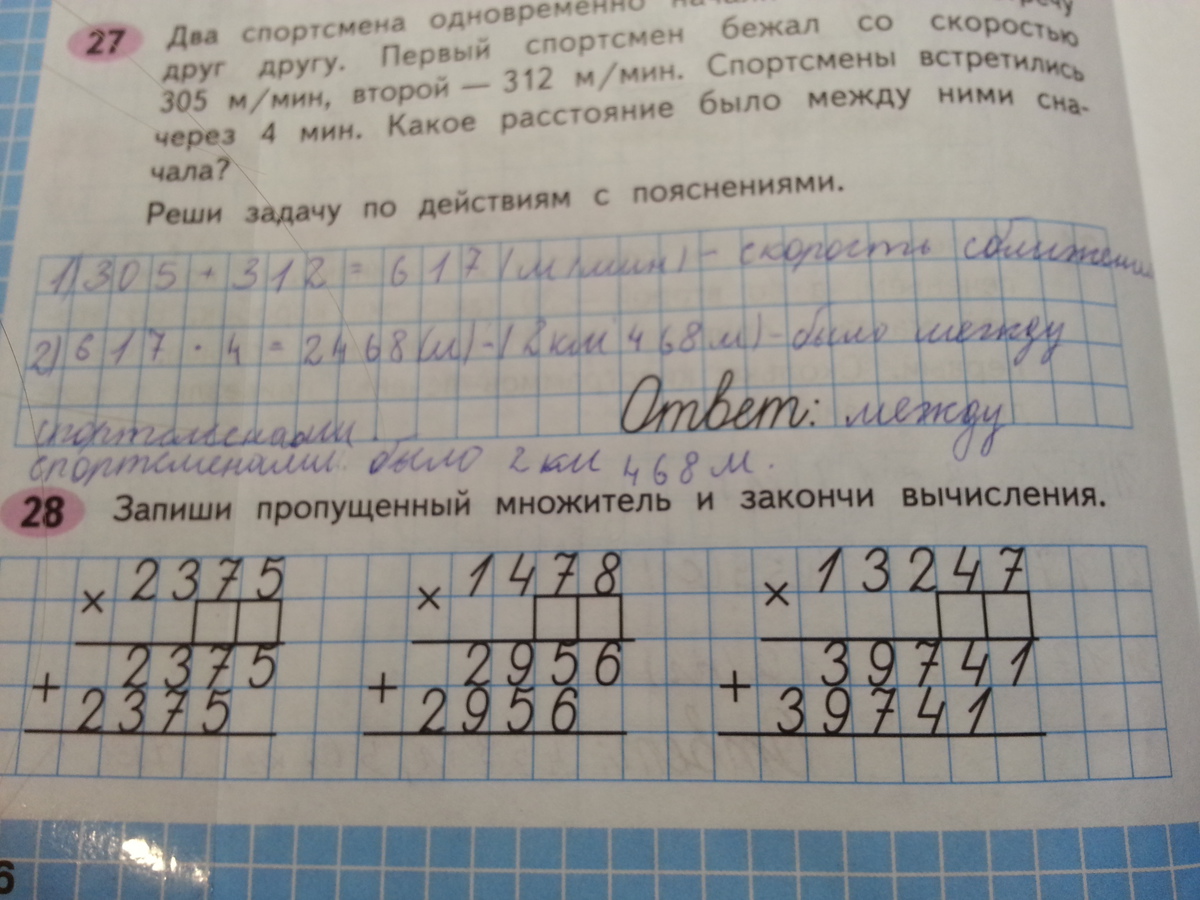 27 Два спортсмена одновременно
друг другу. Первый спортсмен бежал со скоростью
305 м/мин, второй — 312 м/мин. Спортсмены встретились
через 4 мин. Какое расстояние было между ними сна-
чала?
Реши задачу по действиям с пояснениями.
1) 305 + 312 = 617 (м/мин) - скорость сближения
2) 617 · 4 = 2468 (м) - (2 км 468 м) - было между
Ответ: между
спортсменами было 2 км 468 м.
28 Запиши пропущенный множитель и закончи вычисления.
× 2375 × 1478 × 13247
+ 2375 + 2956 + 39741
2375 2956 39741
6